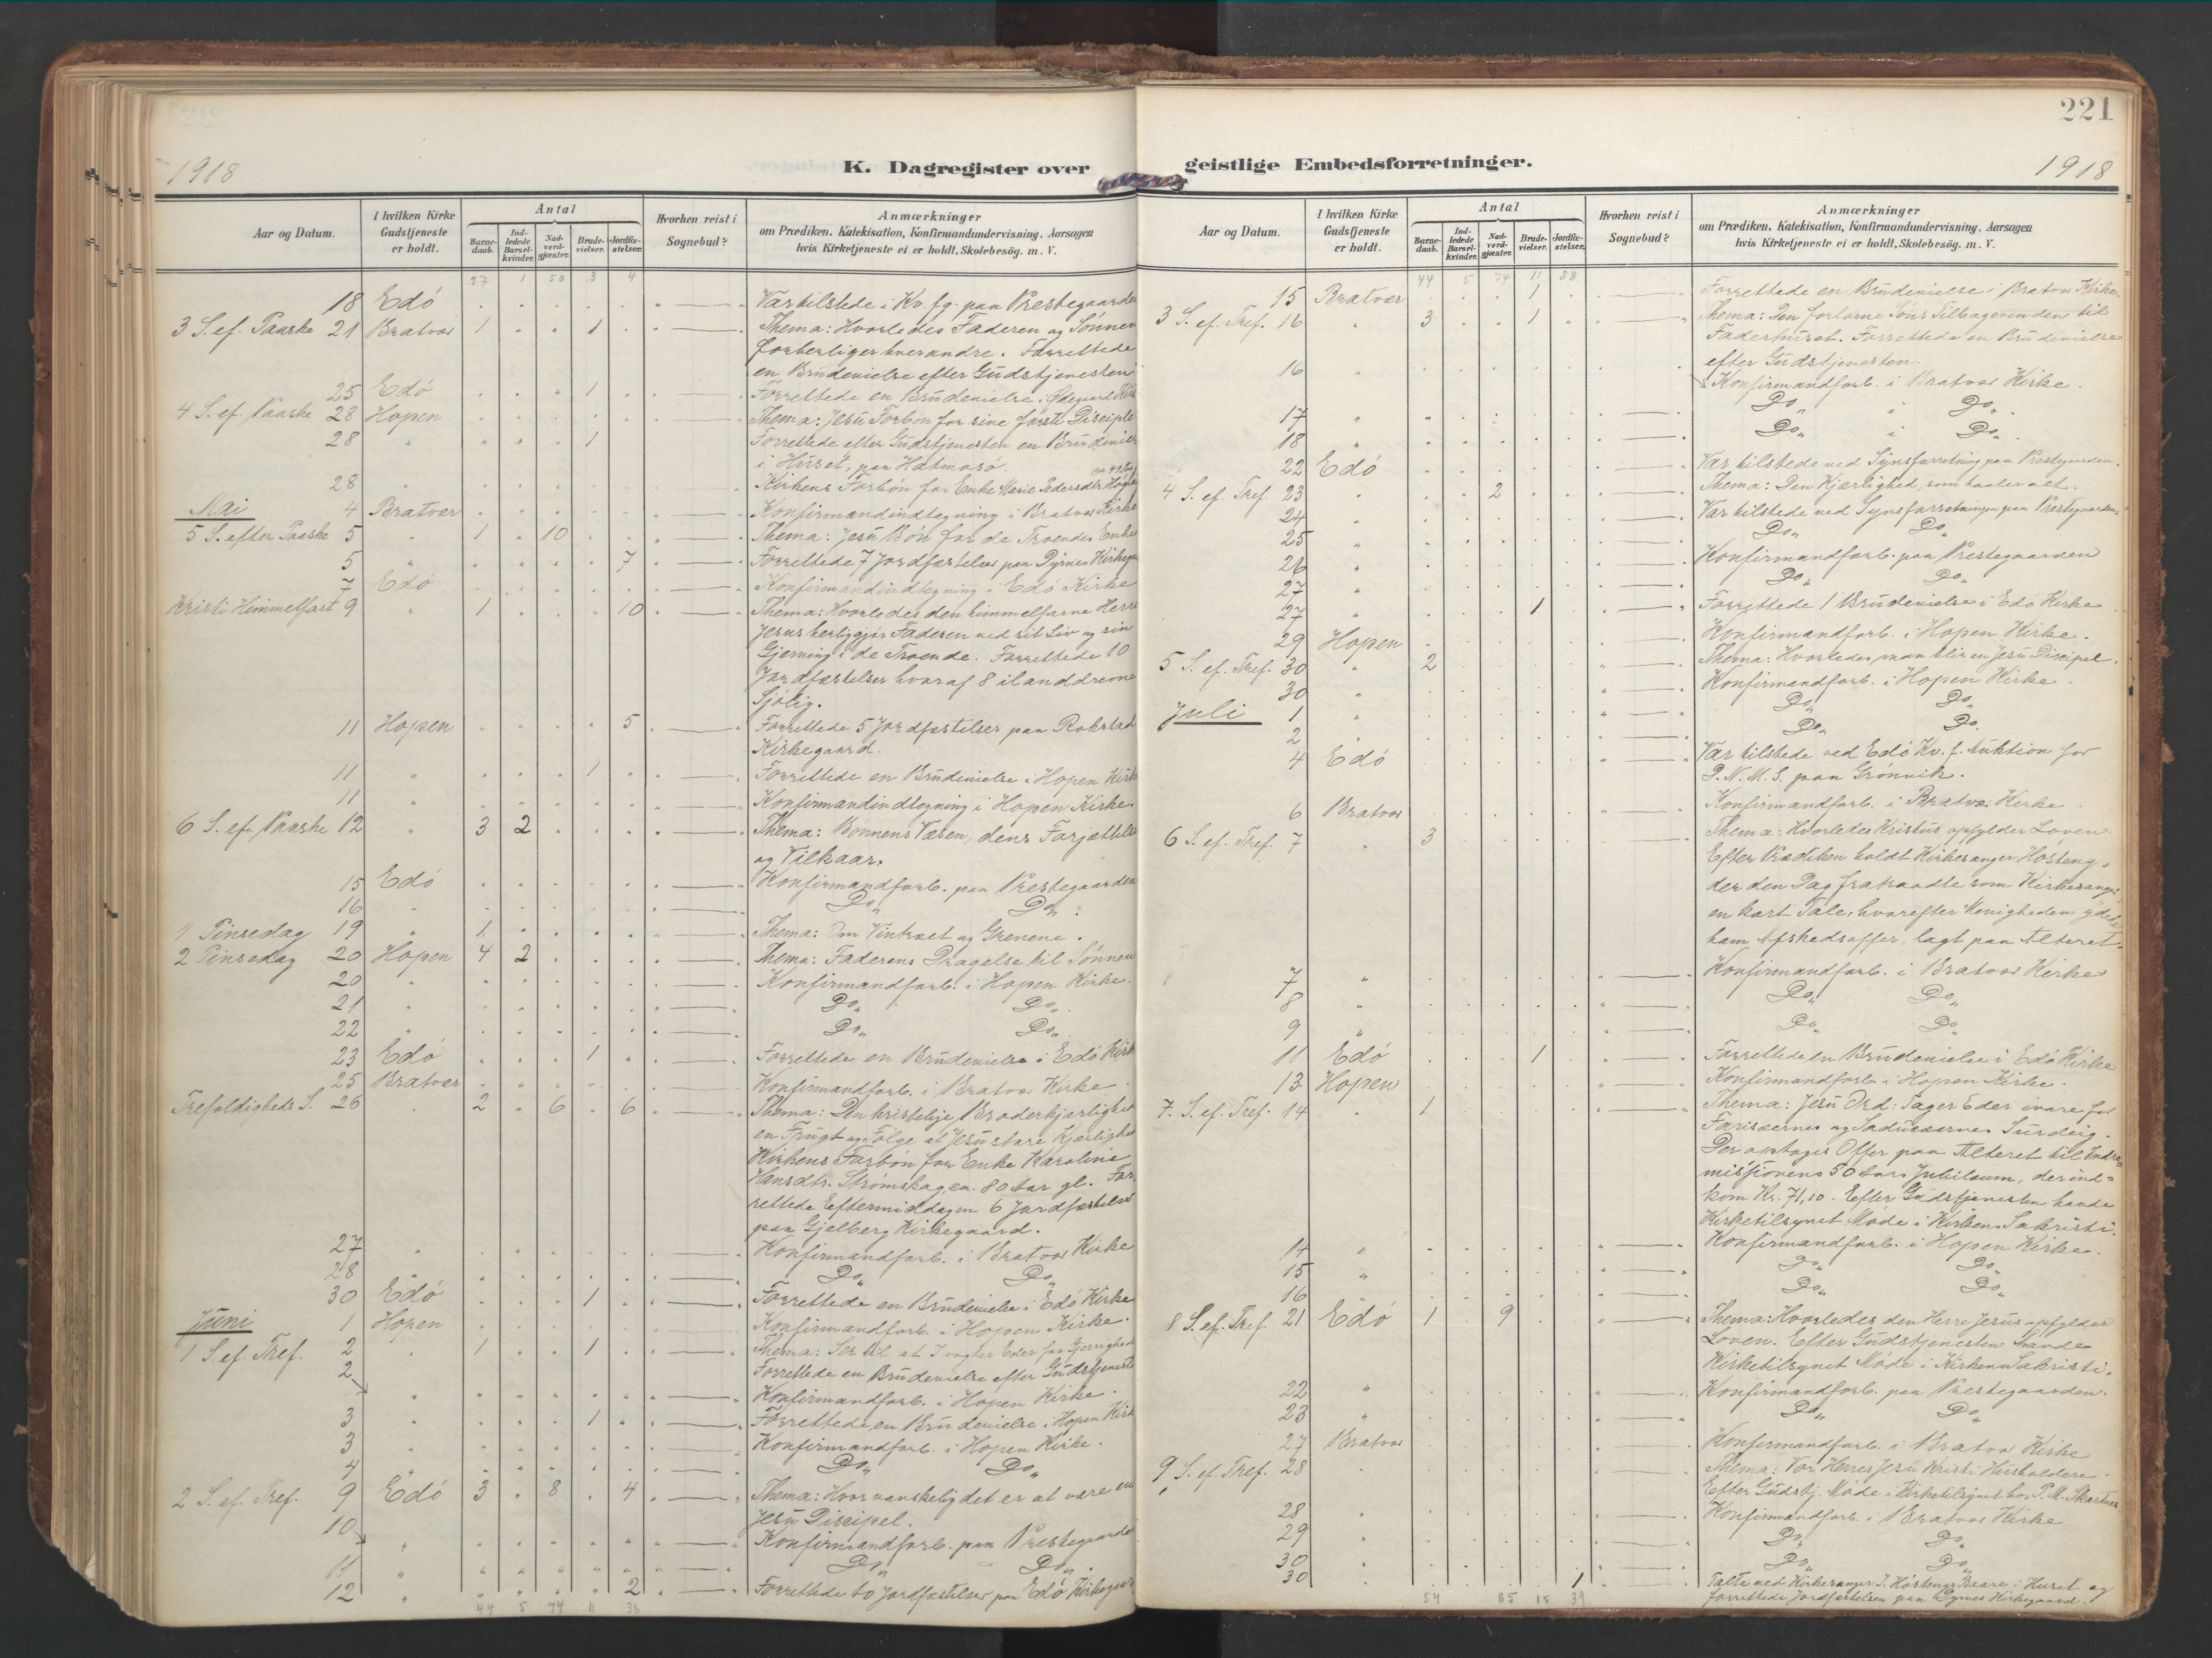 1918
K. Dagregister over
Aar og Datum.
I hvilken Kirke Gudstjeneste er holdt.
Antal
Barnedaab.
Indledede Barselkvinder.
Nadverdgjæster.
Brudevielser.
Jordfæstelser.
Hvorhen reist i Sognebud?
Anmærkninger
om Prædiken, Katekisation, Konfirmandundervisning, Aarsagen
hvis Kirketjeneste ei er holdt, Skolebesög. m. V.
27 1 50 3 4
18 Edö Var tilstede i Kv. fg. paa Prestegaarden
3 S. ef. Paaske 21 Bratvær 1 1 Thema: Hvorledes Faderen og Sønnen
forherliger hverandre. Forrettede
en Brudevielse efter Gudstjenesten
25 Edö 1 Forrettede en Brudevielse i Ødegaard Kirke
4 S. ef. Paaske 28 Hopen Thema: Jesu Forbön for sine förste Disciple
28 " 1 Forrettede efter Gudstjenesten en Brudeviel
i Huset, paa Hatmosö.
28 " Kirkens Forbön for Enke Marie Pedersdtr.
Mai 4 Bratvær Konfirmandindtegning i Bratvær Kirke
5 S. efter Paaske 5 " 1 10 Thema: Jesu Bön for de Troendes Enhe
5 " 7 Forrettede 7 Jordfæstelser paa Dyrnes Kirkega
7 Edö Konfirmandindtegning i Edö Kirke
Kristi Himmelfart 9 " 1 10 Thema: Hvorledes den himmelfarne Herre
Jesus herliggjör Faderen ved sit Liv og sin
Gjerning i de Troende. Forrettede 10
Jordfæstelser hvoraf 8 ilanddrevne
Sjölig.
11 Hopen 5 Forrettede 5 Jordfæstelser paa Rokstad
Kirkegaard.
11 " 1 Forrettede en Brudevielse i Hopen Kirk
11 " Konfirmandindtegning i Hopen Kirke.
6 S. ef. Paaske 12 " 3 2 Thema: Bönnens Væsen, dens Forjættelse
og Vilkaar.
15 Edö Konfirmandforb. paa Prestegaarden
16 " Do„ Do„
1 Pinsedag 19 " 1 Thema: Om Vintræet og Grenene.
2 Pinsedag 20 Hopen 4 2 Thema: Faderens Dragelse til Sønnen
20 " Konfirmandforb. i Hopen Kirke.
21 " Do„ Do„
22 " Do„ Do„
23 Edö 1 Forrettede en Brudevielse i Edö Kirk
25 Bratvær Konfirmandforb. i Bratvær Kirke
Trefoldigheds S. 26 " 2 6 6 Thema: Den kristelige Broderkjærlighed
en Frugt og Følge af Jesu store Kjærlighed
Kirkens Forbön for Enke Karoline
Hansdtr. Strömskagen 80 Aar gl. For
rettede Eftermiddagen 6 Jordfæstelser
paa Gjelberg Kirkegaard.
27 " Konfirmandforb. i Bratvær Kirke
28 " Do„ Do„
30 Edö 1 Forrettede en Brudevielse i Edö Kirke
Juni 1 Hopen Konfirmandforb. i Hopen Kirke.
1 S. ef. Tref. 2 " 1 1 Thema: Ser til at I vogter Eder for Gjerrighed
Forrettede en Brudevielse efter Gudstjeneste
2 " Konfirmandforb. i Hopen Kirke.
3 " 1 Forrettede en Brudevielse i Hopen Kirk
3 " Konfirmandforb. i Hopen Kirke.
4 " Do„ Do„
2 S. ef. Tref. 9 Edö 3 8 4 Thema: Hvor vanskelig det er at være en
Jesu Discipel.
10 " Konfirmandforb. paa Prestegaarde
11 " Do„ Do„
12 " 2 Forrettede to Jordfæstelser paa Edö Kirkegaar
44 5 74 11 38
221
geistlige Embedsforretninger.
1918
Aar og Datum.
I hvilken Kirke Gudstjeneste er holdt.
Antal
Barnedaab.
Indledede Barselkvinder.
Nadverdgjæster.
Brudevielser.
Jordfæstelser.
Hvorhen reist i Sognebud?
Anmærkninger
om Prædiken, Katekisation, Konfirmandundervisning, Aarsagen
hvis Kirketjeneste ei er holdt, Skolebesög. m. V.
44 5 74 11 38
15 Bratvær 1 Forrettede en Brudevielse i Bratvær Kirke.
3 S. ef. Tref. 16 " 3 1 Thema: Den fortorne Söns Tilbagevenden til
Faderhuset. Forrettede en Brudevielse
efter Gudstjenesten.
16 " Konfirmandforb. i Bratvær Kirke.
17 " Do„ i Do„
18 " Do„ i Do„
22 Edö Var tilstede ved Synsforretning paa Prestegaarden.
4 S. ef. Tref. 23 " 2 Thema: Den Kjærlighed, som taaler alt.
24 " Var tilstede ved Synsforretningen paa Prestegaarden.
25 " Do„ Do„
26 " Konfirmandforb. paa Prestegaarden
27 " Do„ Do„
27 " 1 Forrettede 1 Brudevielse i Edö Kirke
29 Hopen Konfirmandforb. i Hopen Kirke.
5 S. ef. Tref. 30 " 2 Thema: Hvorledes man blir en Jesu Discipel.
30 " Konfirmandforb. i Hopen Kirke.
Juli 1 " Do„ Do„
2 " Do„ Do.
4 Edö Var tilstede ved Edö Kv. f. Auktion for
D. N. M. S. paa Grönvik.
6 Bratvær Konfirmandforb. i Bratvær Kirke
6 S. ef. Tref. 7 " 3 Thema: Hvorledes Kristus opfylder Loven.
Efter Prædiken holdt Kirkesanger Hösteng,
der den Dag fratraadte som Kirkesanger,
en kort Tale, hvorefter Menigheden ydet
ham Afskedsoffer, lagt paa Alteret.
7 " Konfirmandforb. i Bratvær Kirke
8 " Do„ Do„
9 " Do„ Do„
11 Edö 1 Forrettede en Brudevielse i Edö Kirke
13 Hopen Konfirmandforb. i Hopen Kirke.
7. S. ef. Tref. 14 " 1 Thema: Jesu Ord: Tager Eder ivare for
Farisæernes og Saducæernes Surdeig.
Der optoges Offer paa Alteret til Indre
missionens 50 Aars Jubilæum, der ind=
kom Kr. 71,10. Efter Gudstjenesten havde
Kirketilsynet Möde i Kirkens Sakristi.
14 " Konfirmandforb. i Hopen Kirke.
15 " Do„ Do„
16 Do„ Do„
8 S. ef. Tref. 21 Edö 1 9 Thema: Hvorledes den Herre Jesus opfylder
Loven. Efter Gudstjenesten havde
Kirketilsynet Möde i Kirkens Sakristi.
22 " Konfirmandforb. paa Prestegaarden.
23 " Do„ Do„
27 Bratvær Konfirmandforb. i Bratvær Kirke
9 S. ef. Tref. 28 " Thema: Vor Herres Jesu Kristi Husholdere.
Efter Gudstj. Möde i Kirketilsynet hos P. M. Skarsnes
28 " Konfirmandforb. i Bratvær Kirke
29 " Do„ Do„
30 " Do„ Do„
30 " 1 Talte ved Kirkesanger J. Höstengs Baare i Huset og
forrettede Jordfæstelsen paa Dyrnes Kirkegaard.
54 85 15 39